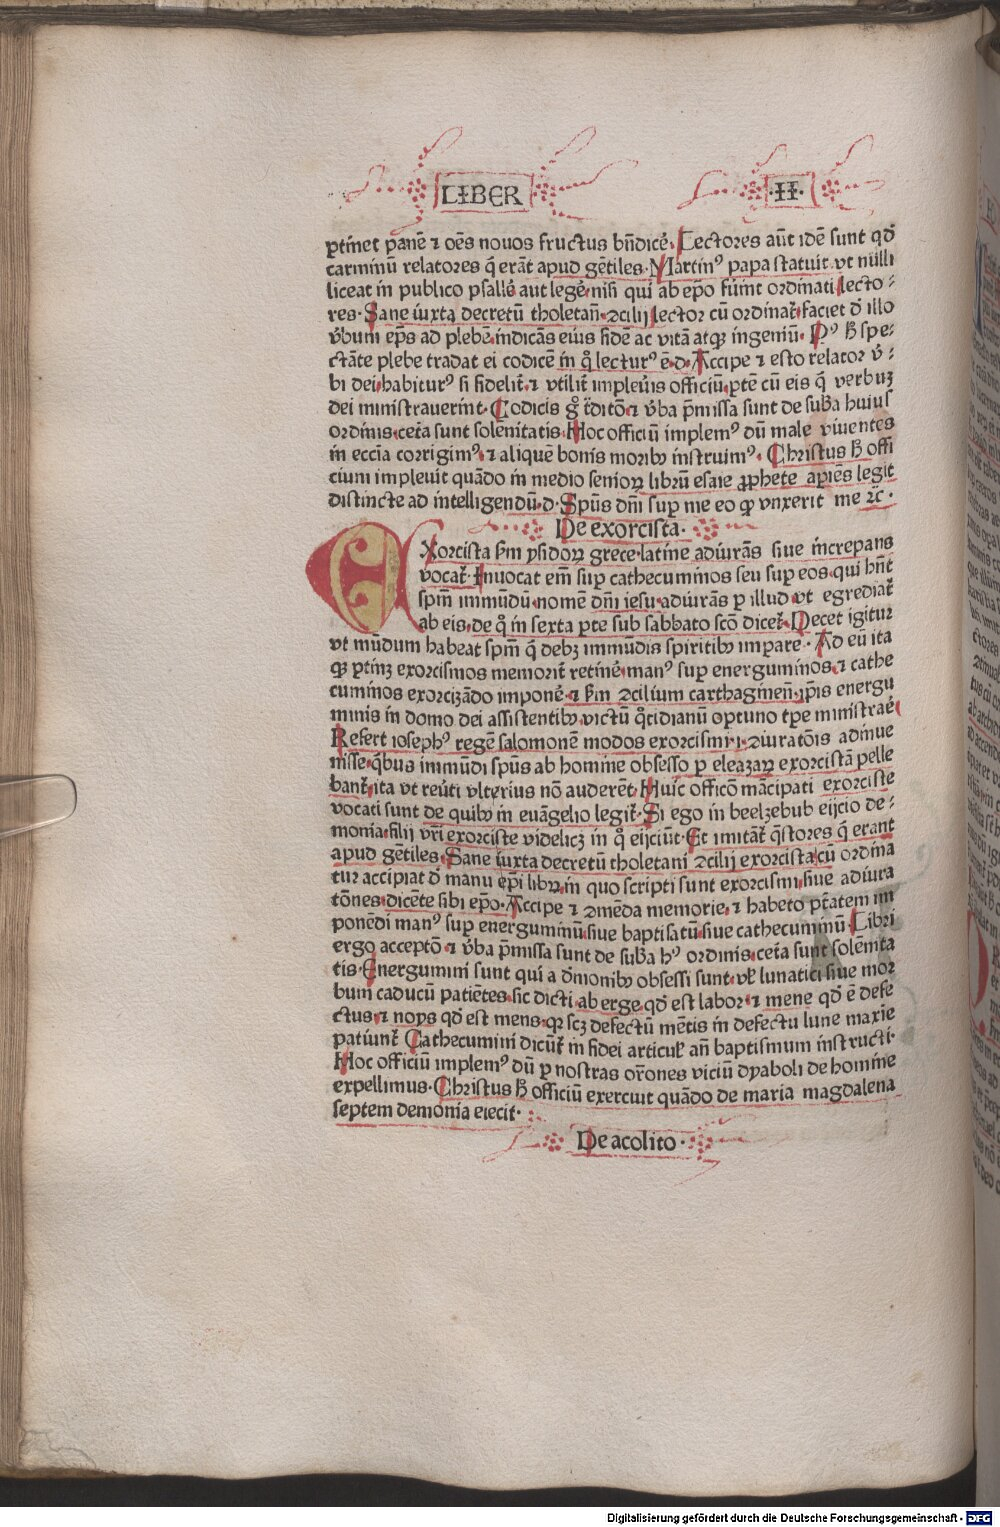 LIBER ·II·
ꝑtinet panē ⁊ oēs novos fructus bn̄dicē. Lectores aūt idē sunt qd̄
carminū relatores q̄ erāt apud gētiles. Martinꝰ papa statuit vt nulli
liceat in publico psallē aut legē nisi qui ab ep̄o fuīnt ordinati lecto⸗
res. Sane iuxta decretū tholetan̄ ↄcilij lector cū ordinat᷑ faciet d̄ illo
v̄bum ep̄s ad plebē indicās eius fidē ac vitā atqꝫ ingeniū. Pꝰ h̄ spe⸗
ctāte plebe tradat ei codicē in q̊ lecturꝰ ē.d. Accipe ⁊ esto relator v̄⸗
bi dei habiturꝰ si fidelit᷑ ⁊ vtilit᷑ impleu̓is officiū ꝑtē cū eis q̄ verbuꝫ
dei ministraverint. Codicis g̊ t̓ditō ⁊ v̄ba p̄missa sunt de sub̄a huius
ordinis cet̓a sunt solēnitatis. Hoc officiū implemꝰ dū male viventes
in eccīa corrigimꝰ ⁊ aliquē bonis moribꝰ instruimꝰ. Christus h̄ offi
cium implevit quādo in medio senioꝝ librū esaie ꝓphete apīēs legit
distincte ad intelligendū.d. Spūs dn̄i suꝑ me eo ꝙ vnxerit me ⁊c̄.
De exorcista.
Exorcista s̄m ysidoꝝ grece latine adiurās siue increpans
vocat᷑. Invocat em̄ suꝑ cathecuminos seu suꝑ eos qui hn̄t
spm̄ immūdū nomē dn̄i iesu adiurās ꝑ illud vt egrediat᷑
ab eis de q̊ in sexta ꝑte sub sabbato scō dicet᷑. Decet igitur
vt mūdum habeat spm̄ q̄ debꝫ immūdis spiritibꝰ imꝑare. Ad eū ita
qꝫ ꝑtinꝫ exorcismos memorit᷑ retinē manꝰ suꝑ energuminos ⁊ cathe
cuminos exorcizādo imponē ⁊ s̄m ↄcilium carthaginen̄ ip̄is energu
minis in domo dei assistentibꝰ victū q̊tidianū oportuno tp̄e ministrāē
Refert iosephꝰ regē salomonē modos exorcismi .i. ↄiuratōis adinue
nisse q̄bus immūdi spūs ab homine obsesso ꝑ eleazaꝝ exorcistā pelle
bant᷑ ita vt reūti vlterius nō auderēt. Huic officō mācipati exorciste
vocati sunt de quibꝰ in euāgelio legit᷑. Si ego in beelzebub eijcio de⸗
monia filij vr̄i exorciste videlicꝫ in q̊ eijciūt. Et imitāt᷑ q̄stores q̄ erant
apud gētiles. Sane iuxta decretū tholetani ↄcilij exorcista cū ordina
tur accipiat d̄ manu ep̄i libꝝ in quo scripti sunt exorcismi siue adiura
tōnes dicēte sibi ep̄o. Accipe ⁊ ↄmēda memorie ⁊ habeto ptātem im
ponēdi manꝰ suꝑ energuminū siue baptisatū siue cathecuminū. Libri
ergo acceptō ⁊ v̄ba p̄missa sunt de sub̄a hꝰ ordinis cet̓a sunt solēnita
tis. Energumini sunt qui a d̄monibꝰ obsessi sunt vl̓ lunatici siue mor
bum caducū patiētes sic dicti ab erge qd̄ est labor ⁊ mene qd̄ ē defe
ctus ⁊ noys qd̄ est mens qꝛ scꝫ defectū mētis in defectu lune maxīe
patiunt᷑ Cathecumini dicūt᷑ in fidei articul̓ an̄ baptismum instructi.
Hoc officiū implemꝰ dū ꝑ nostras or̄ones viciū dyaboli de homine
expellimus. Christus h̄ officiū exercuit quādo de maria magdalena
septem demonia eiecit.
De acolito.
Digitalisierung gefördert durch die Deutsche Forschungsgemeinschaft - DFG